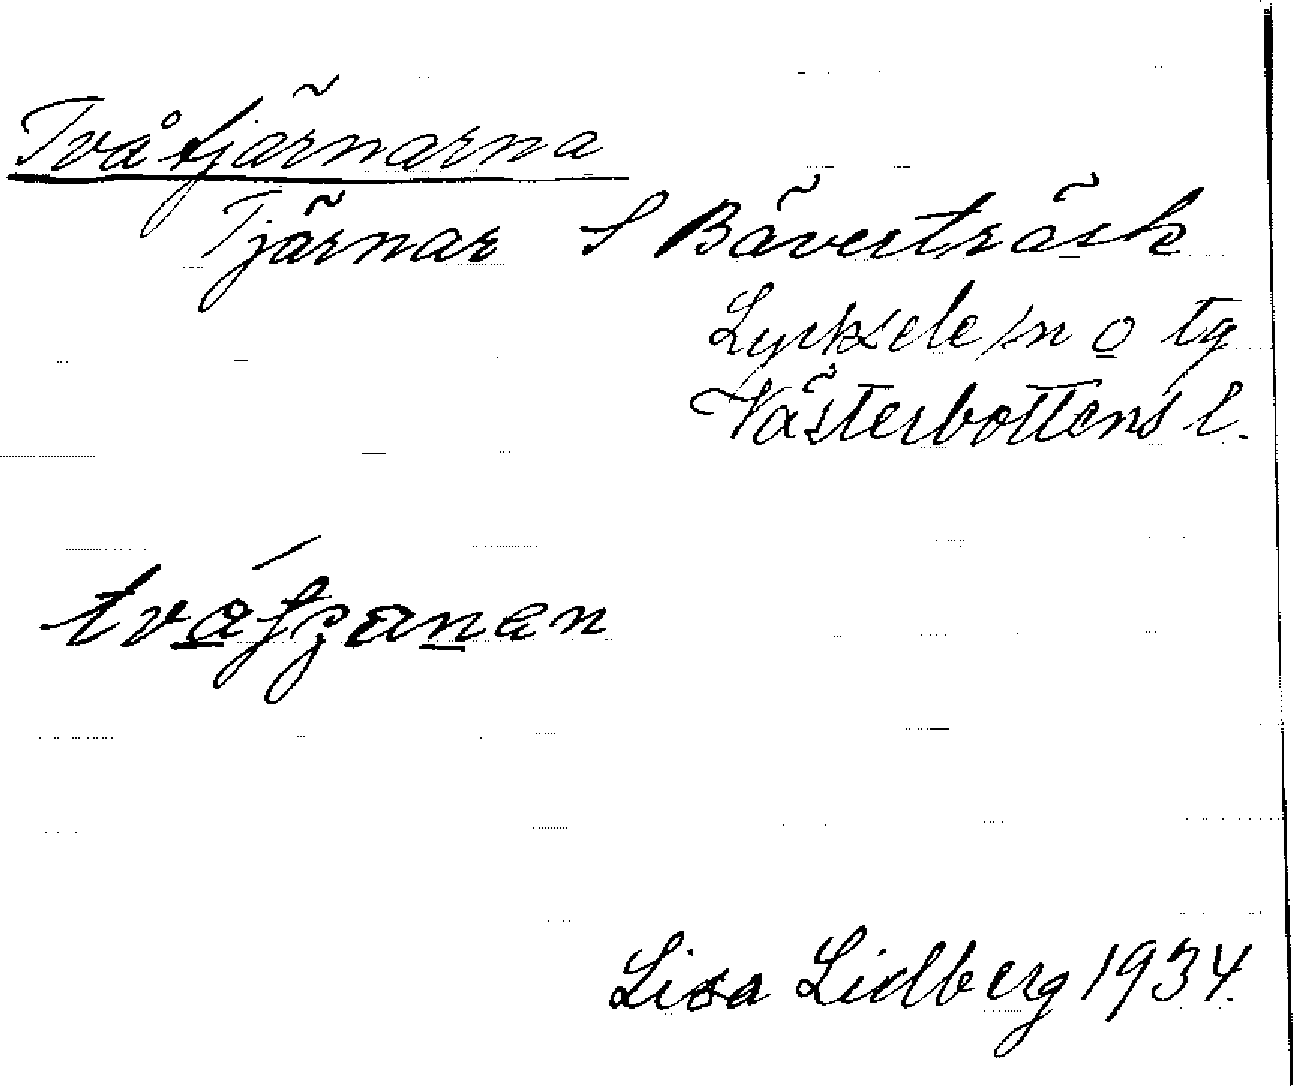 Tvåtjärnarna
Tjärnar S Bäverträsk
Lycksele sn o tg
Västerbottens l.
Lisa Lidberg 1934.